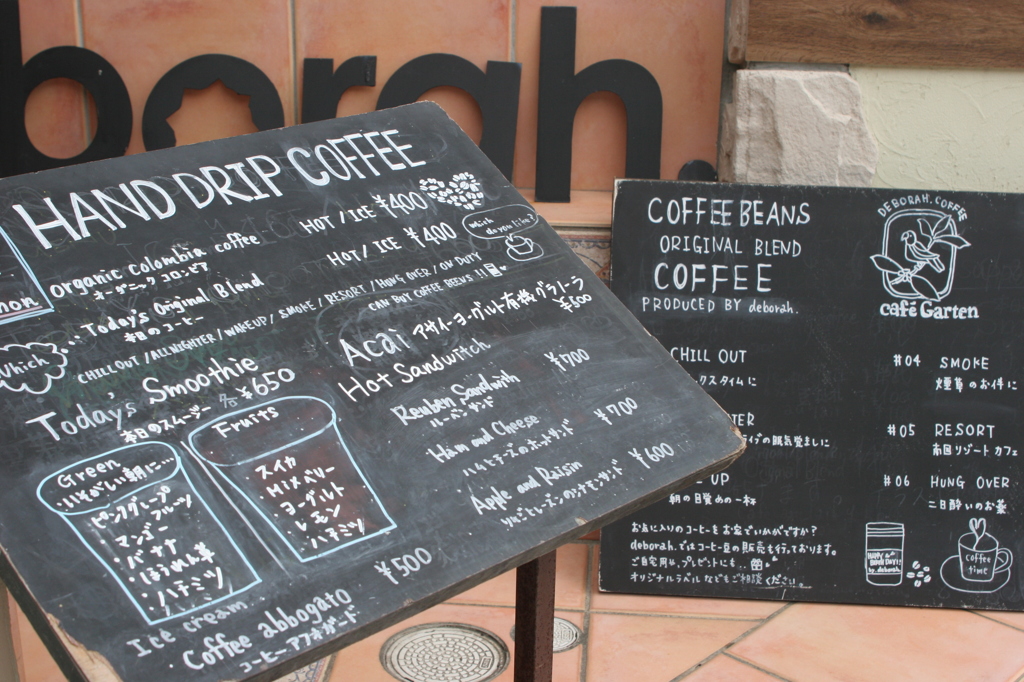 borah.
HAND DRIP COFFEE
organic colombia coffee HOT / ICE ¥400
オーガニック コロンビア
Today's Original Blend HOT / ICE ¥400
本日のコーヒー
which do you like?
Which
CHILLOUT / ALLNIGHTER / WAKEUP / SMOKE / RESORT / HUNG OVER / ON DUTY
CAN BUY COFFEE BEENS !!
Today's Smoothie
本日のスムージー ¥650
Green
いそがしい朝に…
ピンクグレープフルーツ
マンゴー
バナナ
ほうれん草
ハチミツ
Fruits
スイカ
MIXベリー
ヨーグルト
レモン
ハチミツ
Acai アサイーヨーグルト有機グラノーラ
¥600
Hot Sandwitch
Reuben Sandwith ¥700
ルーベンサンド
Ham and Cheese ¥700
ハムとチーズのホットサンド
Apple and Raisin ¥600
りんごとレーズンのシナモンサンド
Ice cream
Coffee abbogato ¥500
コーヒーアフォガード
COFFEE BEANS
ORIGINAL BLEND
COFFEE
PRODUCED BY deborah.
DEBORAH.COFFEE
café Garten
CHILL OUT
クスタイムに
TER
の眠気覚ましに
UP
朝の目覚めの一杯
#04 SMOKE
煙草のお伴に
#05 RESORT
南国リゾートカフェ
#06 HUNG OVER
二日酔いのお薬
お気に入りのコーヒーをお家でいかがですか?
deborah.ではコーヒー豆の販売も行っております。
ご自宅用に、プレゼントにも…
オリジナルラベルなどもご相談ください。
HAPPY BIRTHDAY!
by deborah.
Coffee time